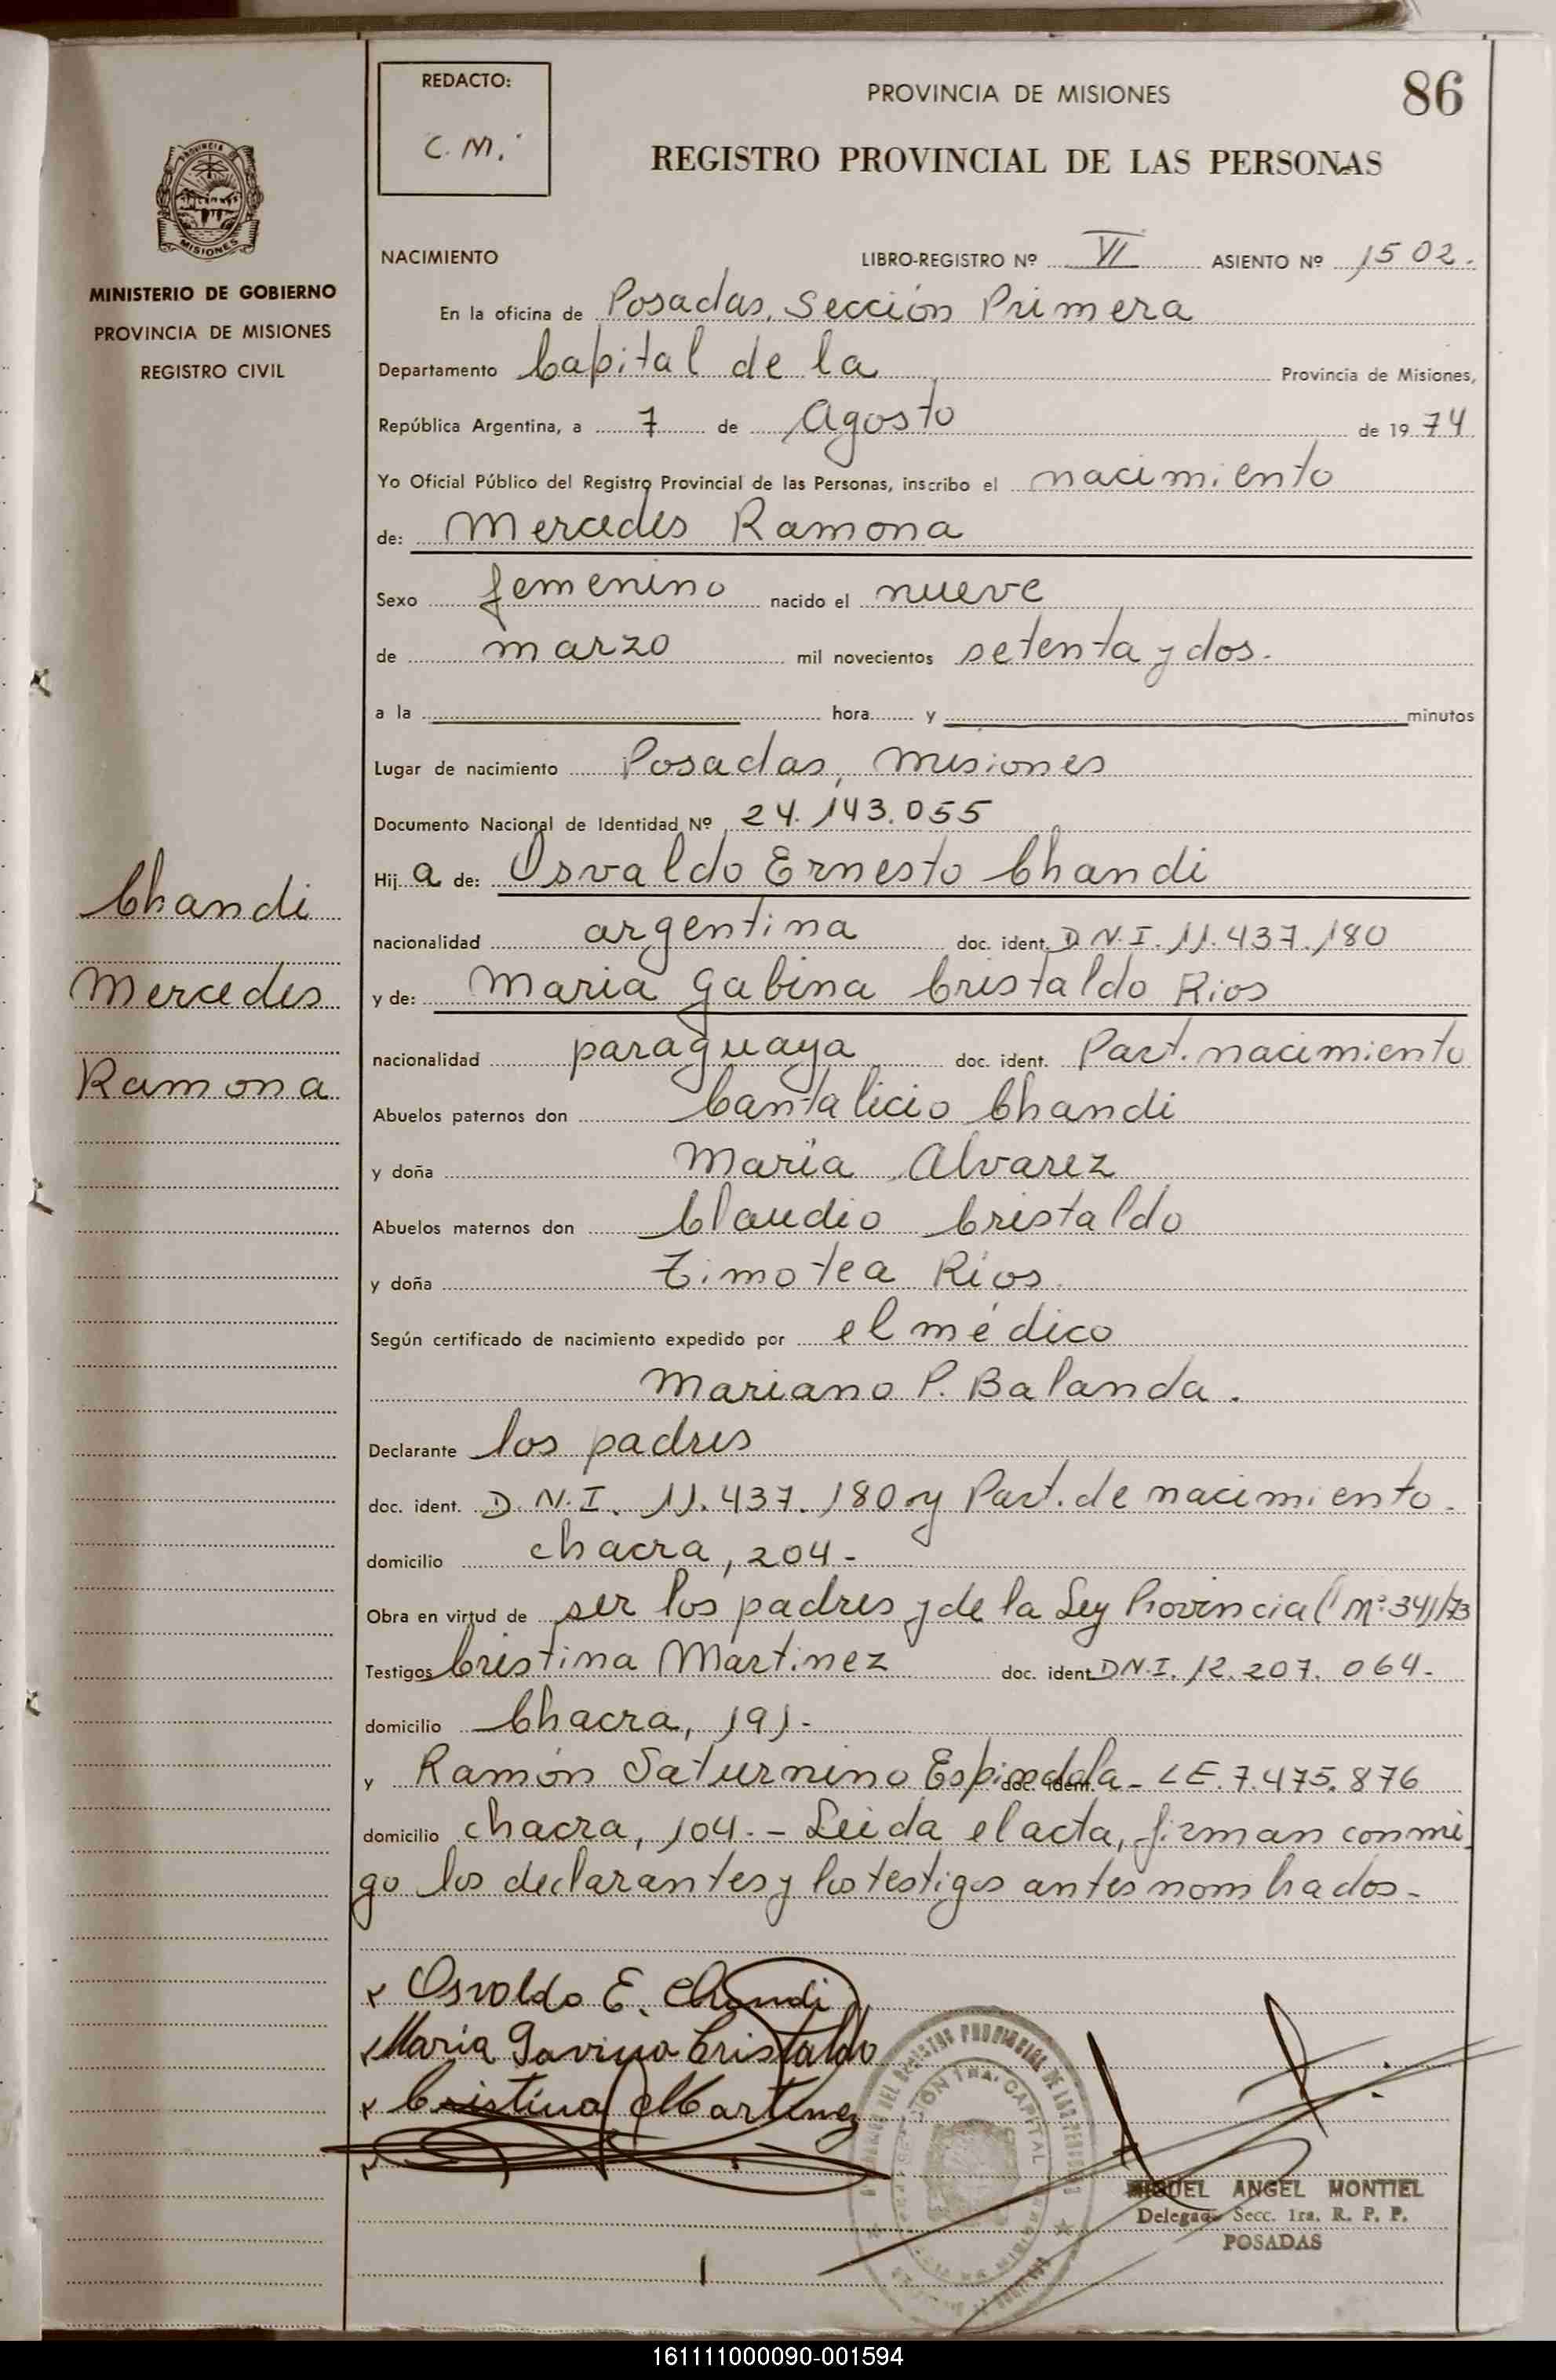 REDACTO:
C. M.
PROVINCIA DE MISIONES
86
REGISTRO PROVINCIAL DE LAS PERSONAS
MISIONES
MINISTERIO DE GOBIERNO
PROVINCIA DE MISIONES
REGISTRO CIVIL
NACIMIENTO LIBRO-REGISTRO Nº VI ASIENTO Nº 1502.
En la oficina de Posadas, Sección Primera
Departamento Capital de la Provincia de Misiones,
República Argentina, a 7 de Agosto de 1974
Yo Oficial Público del Registro Provincial de las Personas, inscribo el nacimiento
de: Mercedes Ramona
Sexo femenino nacido el nueve
de marzo mil novecientos setenta y dos.
a la hora y minutos
Lugar de nacimiento Posadas, Misiones
Documento Nacional de Identidad Nº 24.143.055
Chandi
Mercedes
Ramona
Hija de: Osvaldo Ernesto Chandi
nacionalidad argentina doc. ident. D.N.I. 11.437.180
y de: Maria Gabina Cristaldo Rios
nacionalidad paraguaya doc. ident. Part. nacimiento
Abuelos paternos don Cantalicio Chandi
y doña Maria Alvarez
Abuelos maternos don Claudio Cristaldo
y doña Timotea Rios.
Según certificado de nacimiento expedido por el médico
Mariano P. Balanda.
Declarante los padres
doc. ident. D.N.I. 11.437.180 y Part. de nacimiento.
domicilio chacra, 204-
Obra en virtud de ser los padres y de la Ley Provincial Nº 341/73
Testigos Cristina Martinez doc. ident. D.N.I. 12.207.064-
domicilio Chacra, 191-
y Ramón Saturnino Espindola doc. ident. - L.E. 7.475.876
domicilio chacra, 104.- Leida el acta, firman conmi
go los declarantes y los testigos antes nombrados-
x Osvaldo E. Chandi
x Maria Gavina Cristaldo
x Cristina Martinez
x
MIGUEL ANGEL MONTIEL
Delegado Secc. 1ra. R. P. P.
POSADAS
161111000090-001594